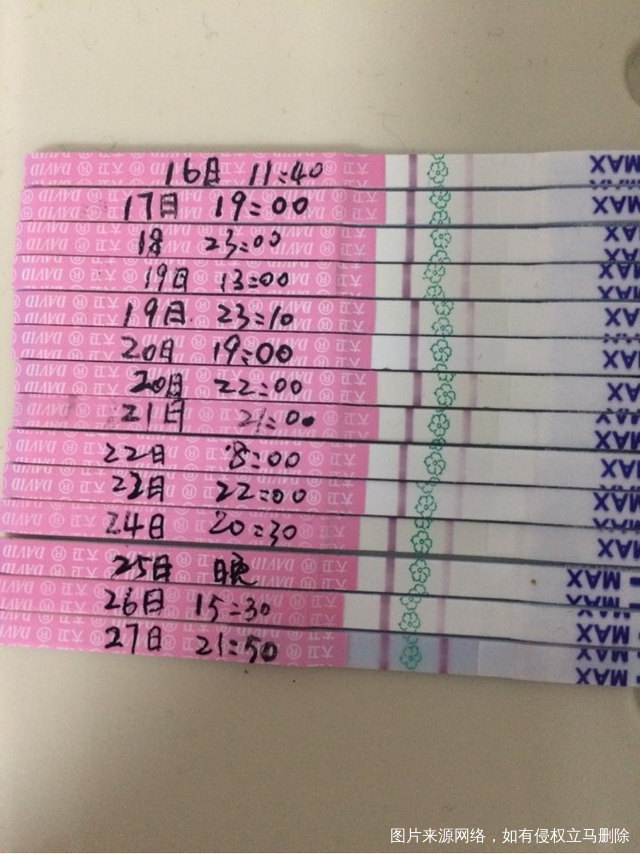 16日 11:40 MAX
17日 19:00 MAX
18 23:00 MAX
19日 13:00 MAX
19日 23:10 MAX
20日 19:00 MAX
20日 22:00 MAX
21日 21:00 MAX
22日 8:00 MAX
22日 22:00 MAX
24日 20:30 MAX
25日 晚 MAX
26日 15:30 MAX
27日 21:50 MAX
DAVID ® 大卫
图片来源网络，如有侵权立马删除